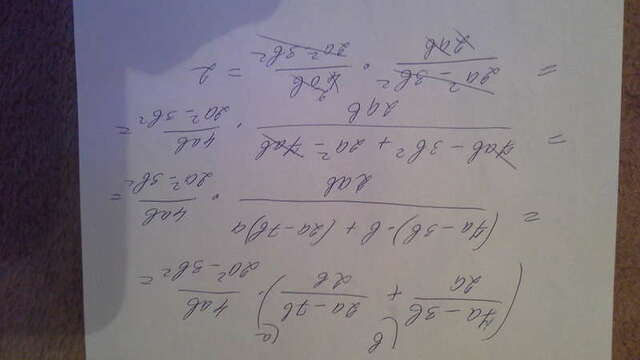 (7a - 3b / 2a + 2a - 7b / 2b) · 4ab / 2a² - 3b² =
= (7a - 3b) · b + (2a - 7b) a / 2ab · 4ab / 2a² - 3b² =
= 7ab - 3b² + 2a² - 7ab / 2ab · 4ab / 2a² - 3b² =
= 2a² - 3b² / 2ab · 4ab / 2a² - 3b² = 2